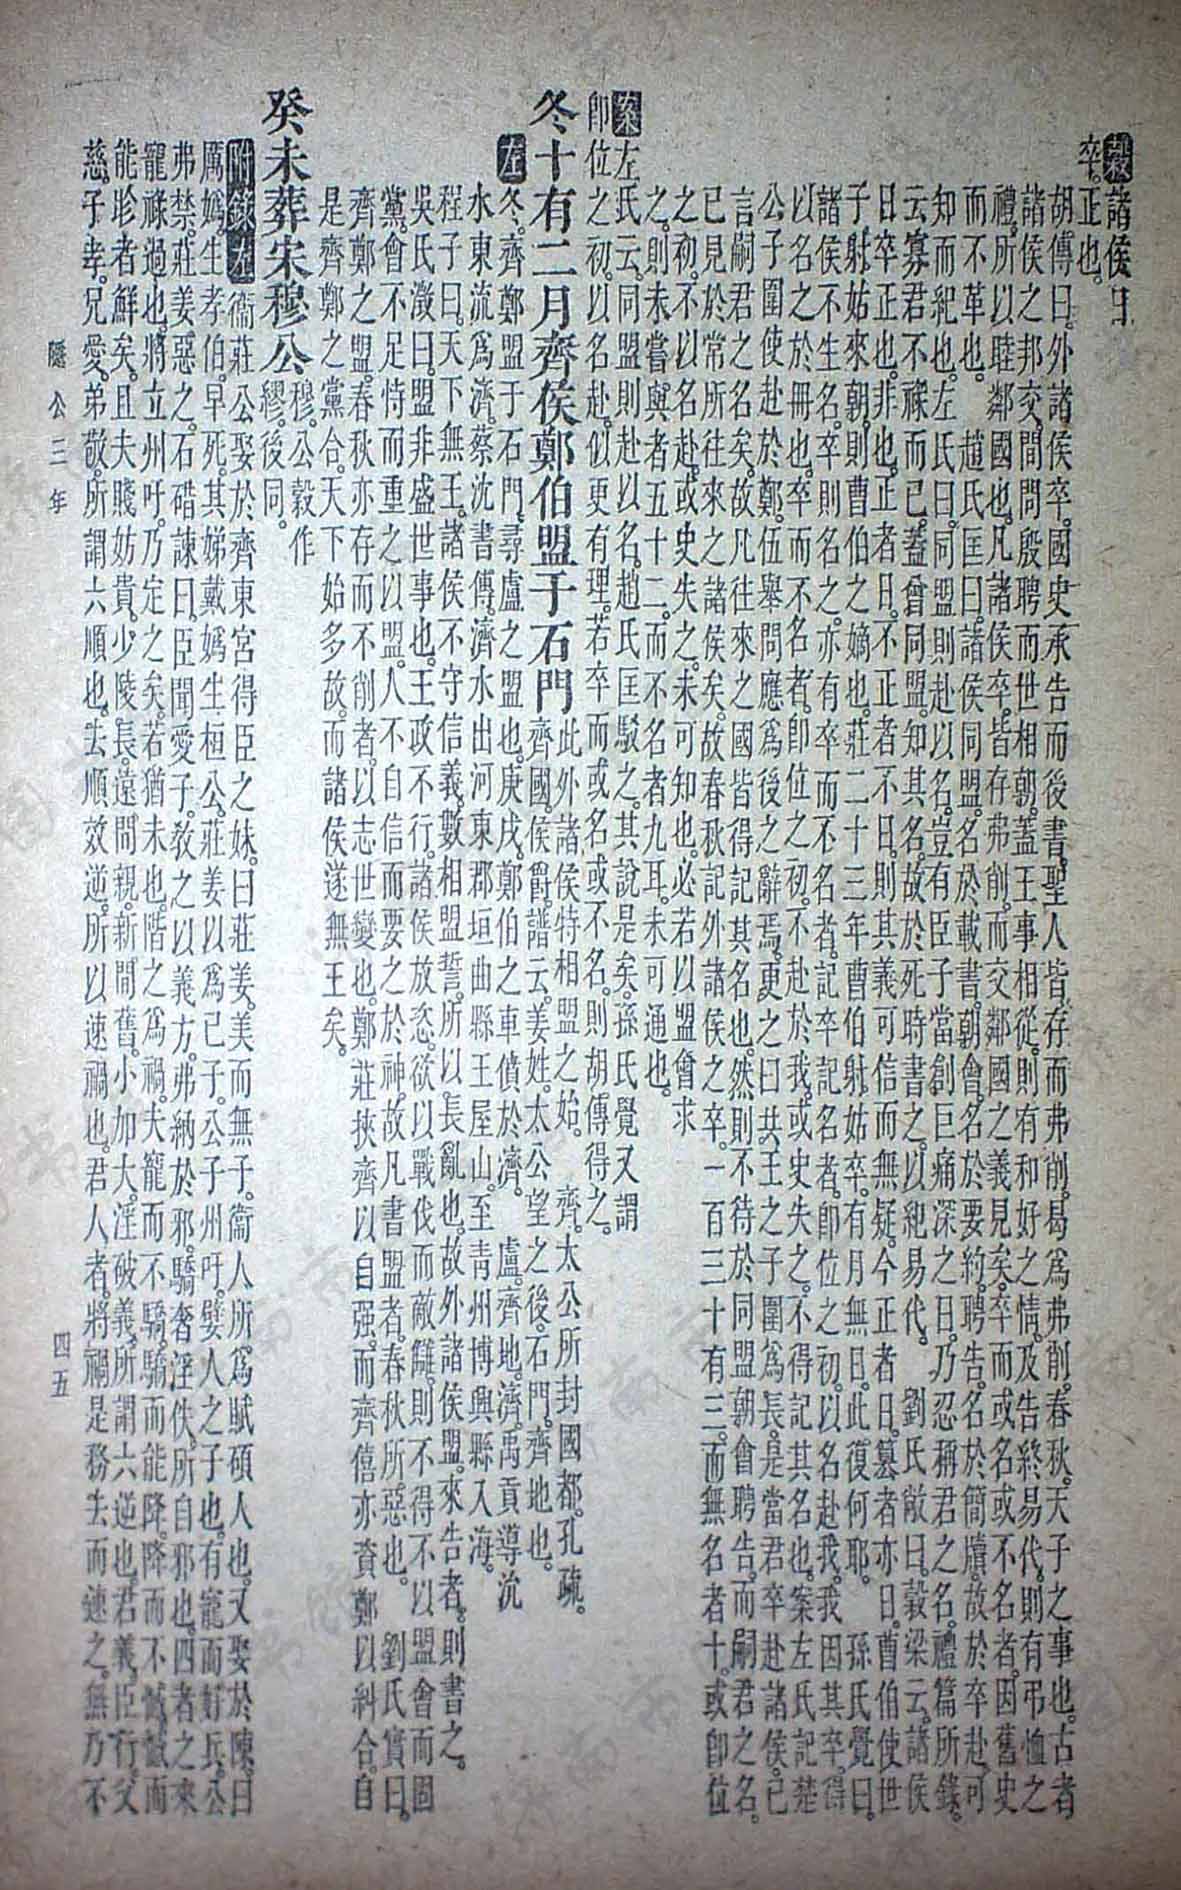 穀諸侯日
卒。正也。
胡傳曰。外諸侯卒。國史承告而後書。聖人皆存而弗削。曷爲弗削。春秋。天子之事也。古者
諸侯之邦交。間問殷聘。而世相朝。蓋王事相從。則有和好之情。及告終易代。則有弔恤之
禮。所以睦鄰國也。凡諸侯卒。皆存弗削。而交鄰國之義見矣。卒而或名或不名者。因舊史
而不革也。趙氏匡曰。諸侯同盟。名於載書。朝會名於要約。聘告。名於簡牘。故於卒赴可
知而紀也。左氏曰。同盟則赴以名。豈有臣子當創巨痛深之日。乃忍稱君之名。禮篇所錄。
云寡君不祿而已。蓋會同盟。知其名。故於死時書之。以紀易代。劉氏敞曰。穀梁云。諸侯
日卒正也。非也。正者日。不正者不日。則其義可信而無疑。今正者日。簒者亦日。曹伯使世
子射姑來朝。則曹伯之嫡也。莊二十三年曹伯射姑卒。有月無日。此復何耶。孫氏覺曰。
諸侯不生名。卒則名之。亦有卒而不名者。記卒記名者。卽位之初。以名赴我。我因其卒。得
以名之於冊也。卒而不名者。卽位之初。不赴於我。或史失之。不得記其名也。案左氏記楚
公子圍使赴於鄭。伍舉問應爲後之辭焉。更之曰。共王之子圍爲長。是當君卒赴諸侯。已
言嗣君之名矣。故凡往來之國。皆得記其名也。然則不待於同盟朝會聘告。而嗣君之名。
已見於常所往來之諸侯矣。故春秋記外諸侯之卒。一百三十有三。而無名者十。或卽位
之初。不以名赴。或史失之。未可知也。必若以盟會求
之。則未嘗與者五十二。而不名者九耳。未可通也。
案左氏云。同盟則赴以名。趙氏匡駁之。其說是矣。孫氏覺又謂
卽位之初。以名赴。似更有理。若卒而或名或不名。則胡傳得之。
冬十有二月齊侯鄭伯盟于石門 此外諸侯特相盟之始。齊。太公所封國都。孔疏。
齊國。侯爵。譜云。姜姓。太公望之後。石門。齊地也。
左冬。齊鄭盟于石門。尋盧之盟也。庚戌。鄭伯之車僨於濟。盧。齊地。濟。禹貢導沇
水東流爲濟。蔡沈書傳。濟水出河東郡垣曲縣王屋山。至靑州博興縣入海。
程子曰。天下無王。諸侯不守信義。數相盟誓。所以長亂也。故外諸侯盟。來告者。則書之。
吳氏澂曰。盟非盛世事也。王政不行。諸侯放恣。欲以戰伐而敵讎。則不得不以盟會而固
黨。會不足恃而重之以盟。人不自信而要之於神。故凡書盟者。春秋所惡也。劉氏實曰。
齊鄭之盟。春秋亦存而不削者。以志世變也。鄭莊挾齊以自强。而齊僖亦資鄭以糾合。自
是齊鄭之黨合。天下始多故。而諸侯遂無王矣。
癸未葬宋穆公 穆。公穀作
繆。後同。
附錄左衞莊公娶於齊東宮得臣之妹。曰莊姜。美而無子。衞人所爲賦碩人也。又娶於陳。曰
厲嬀。生孝伯。早死。其娣戴嬀生桓公。莊姜以爲己子。公子州吁。嬖人之子也。有寵而好兵。公
弗禁。莊姜惡之。石碏諫曰。臣聞愛子。敎之以義方。弗納於邪。驕奢淫佚。所自邪也。四者之來
寵祿過也。將立州吁。乃定之矣。若猶未也。階之爲禍。夫寵而不驕。驕而能降。降而不憾。憾而
能眕者鮮矣。且夫賤妨貴。少陵長。遠間親。新間舊。小加大。淫破義。所謂六逆也。君義。臣行。父
慈。子孝。兄愛。弟敬。所謂六順也。去順效逆。所以速禍也。君人者。將禍是務去。而速之。無乃不
隱公三年
四五